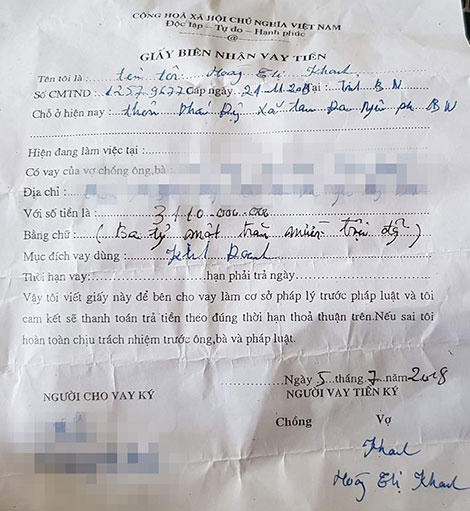 CỘNG HOÀ XÃ HỘI CHỦ NGHĨA VIỆT NAM
Độc lập – Tự do – Hạnh phúc
@
GIẤY BIÊN NHẬN VAY TIỀN
Tên tôi là: tên tôi Hoàng Thị Khanh
Số CMTND: Cấp ngày 21.11.2013 Tại: B N
Chỗ ở hiện nay: thôn B N
Hiện đang làm việc tại:
Có vay của vợ chồng ông,bà :
Địa chỉ :
Với số tiền là : 3110.000.000
Bằng chữ: (Ba tỷ một trăm triệu
Mục đích vay dùng : Kinh Doanh
Thời hạn vay: hạn phải trả ngày
Vậy tôi viết giấy này để bên cho vay làm cơ sở pháp lý trước pháp luật và tôi
cam kết sẽ thanh toán trả tiền theo đúng thời hạn thoả thuận trên.Nếu sai tôi
hoàn toàn chịu trách nhiệm trước ông,bà và pháp luật.
Ngày 5 tháng 7 năm 2018
NGƯỜI CHO VAY KÝ NGƯỜI VAY TIỀN KÝ
Chồng Vợ
Khanh
Hoàng Thị Khanh